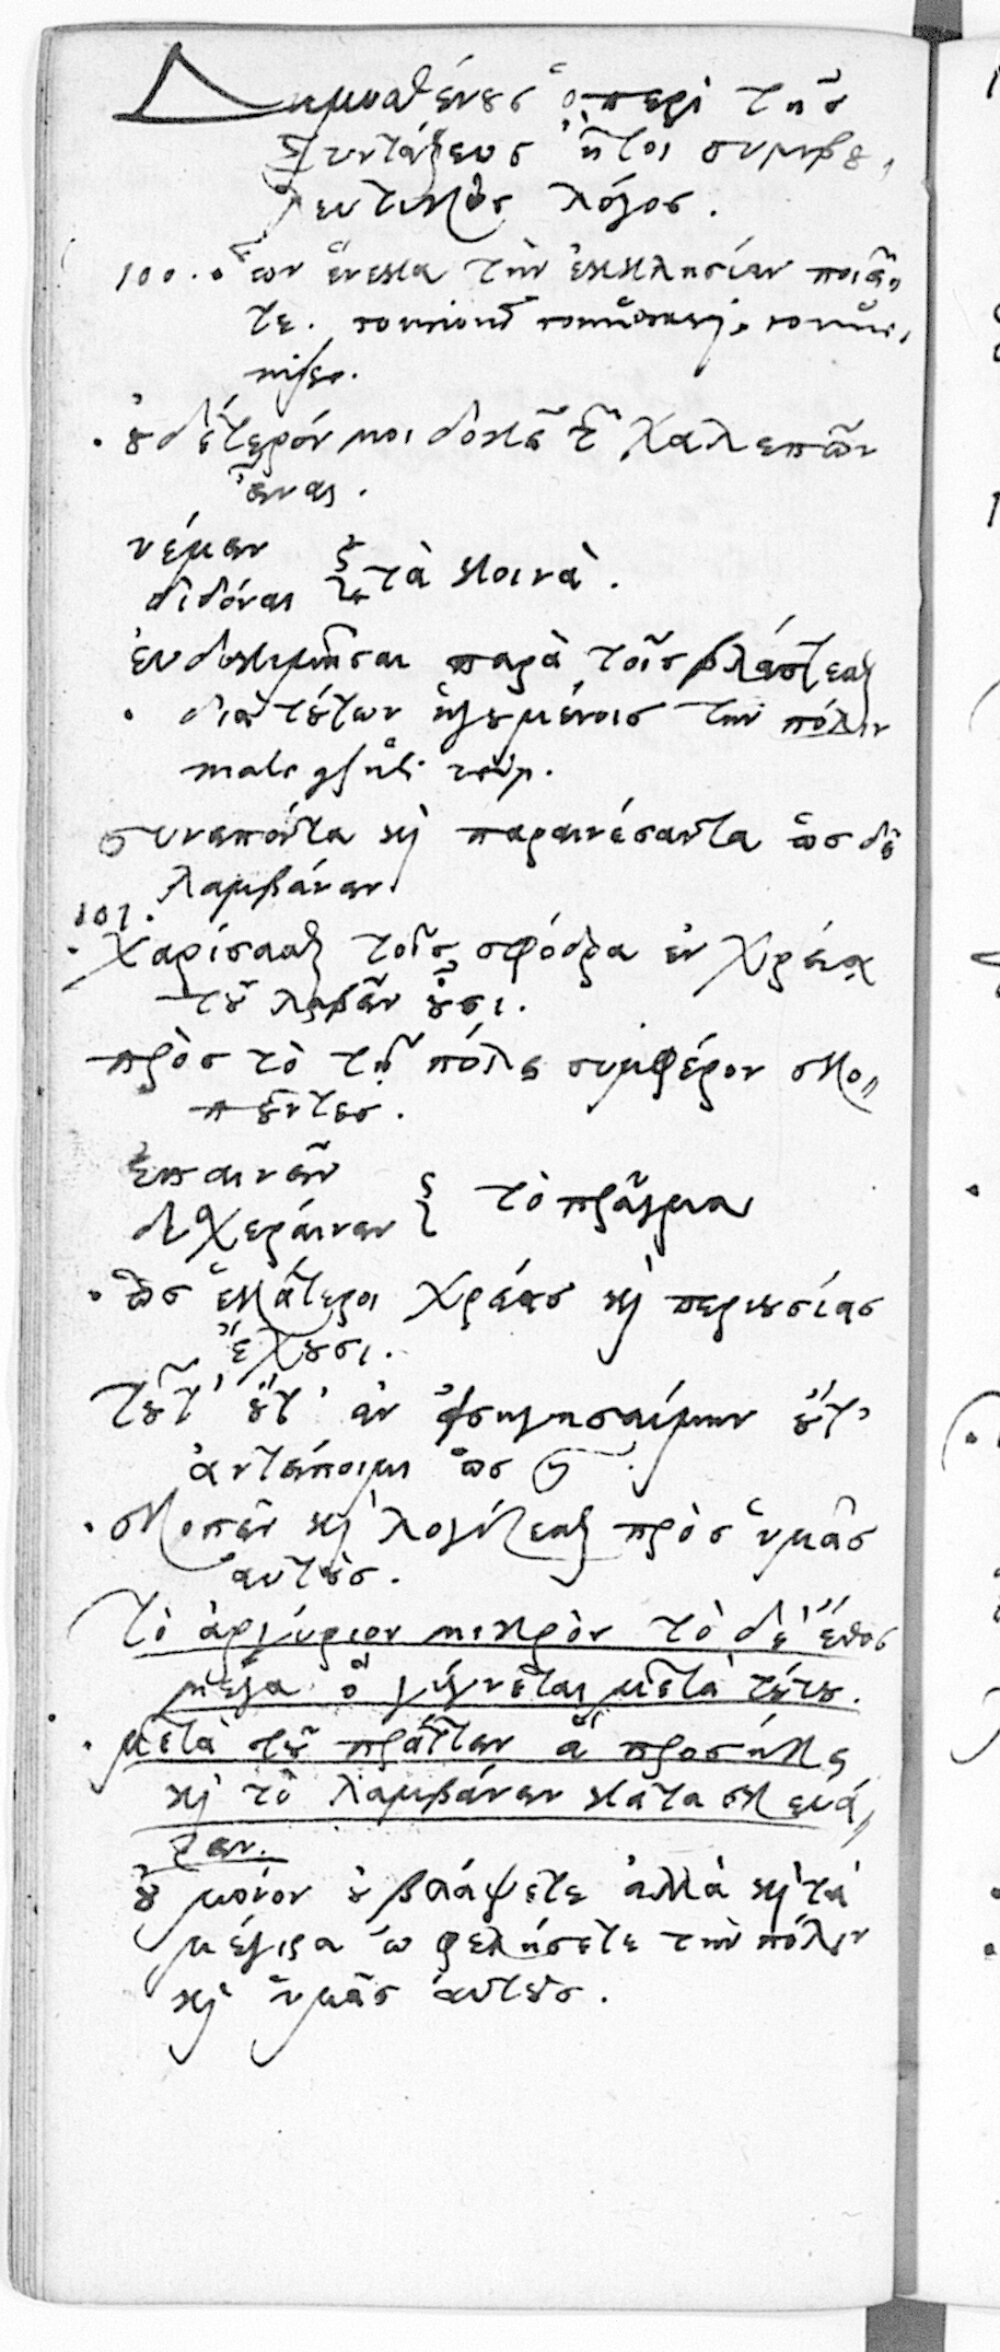 Δημοσθένους ὁ περὶ τῆς
Συντάξεως ἤτοι συμβου,
λευτικὸς λόγος.
100. ὧν ἕνεκα τὴν ἐκκλησίαν ποιεῖ,,
τε.
οὐδέτερόν μοι δοκεῖ τῶν χαλεπῶν
εἶναι.
νέμειν
διδόναι } τὰ κοινὰ.
εὐδοκιμῆσαι παρὰ τοῖς βλάπτεσθαι
διὰ τούτων ἡγουμένοις τὴν πόλιν
συνειπόντα καὶ παραινέσαντα ὡς δεῖ
λαμβάνειν
101.
χαρίσασθαι τοῖς σφόδρα ἐν χρείᾳ
τοῦ λαβεῖν οὖσι.
πρὸς τὸ τῇ πόλει συμφέρον σκο,,
ποῦντες.
ἐπαινεῖν
δυσχεραίνειν } τὸ πρᾶγμα
ὡς ἑκάτεροι χρείας καὶ περιουσίας
ἔχουσι.
τοῦτ' οὔτ' ἂν εἰσηγησαίμην οὔτ'
ἀντείποιμι ὡς οὐ
σκοπεῖν καὶ λογίζεσθαι πρὸς ὑμᾶς
αὐτοὺς.
τὸ ἀργύριον μικρὸν τὸ δὲ ἔθος
μέγα ὃ γίγνεται μετὰ τούτου.
μετὰ τοῦ πράττειν ἃ προσήκει
καὶ τὸ λαμβάνειν κατασκευά,,
ζειν.
οὐ μόνον οὐ βλάψετε ἀλλὰ καὶ τὰ
μέγιστα ὠφελήσετε τὴν πόλιν
καὶ ὑμᾶς αὐτοὺς.